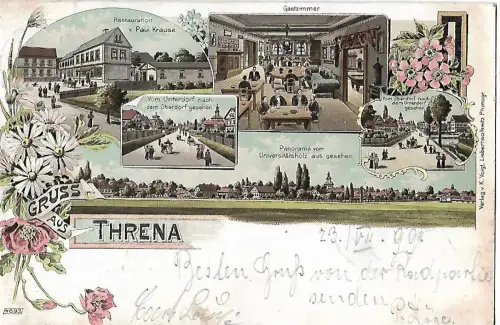 Restauration
v. Paul Krause.
Gastzimmer
Vom Unterdorf nach
dem Oberdorf gesehen
Vom Oberdorf nach
dem Unterdorf
gesehen
Panorama vom
Universitätsholz aus gesehen.
GRUSS
AUS
THRENA
Verlag v. K. Voigt, Liebertwolkwitz
23./VII.
Besten Gruß von der
senden